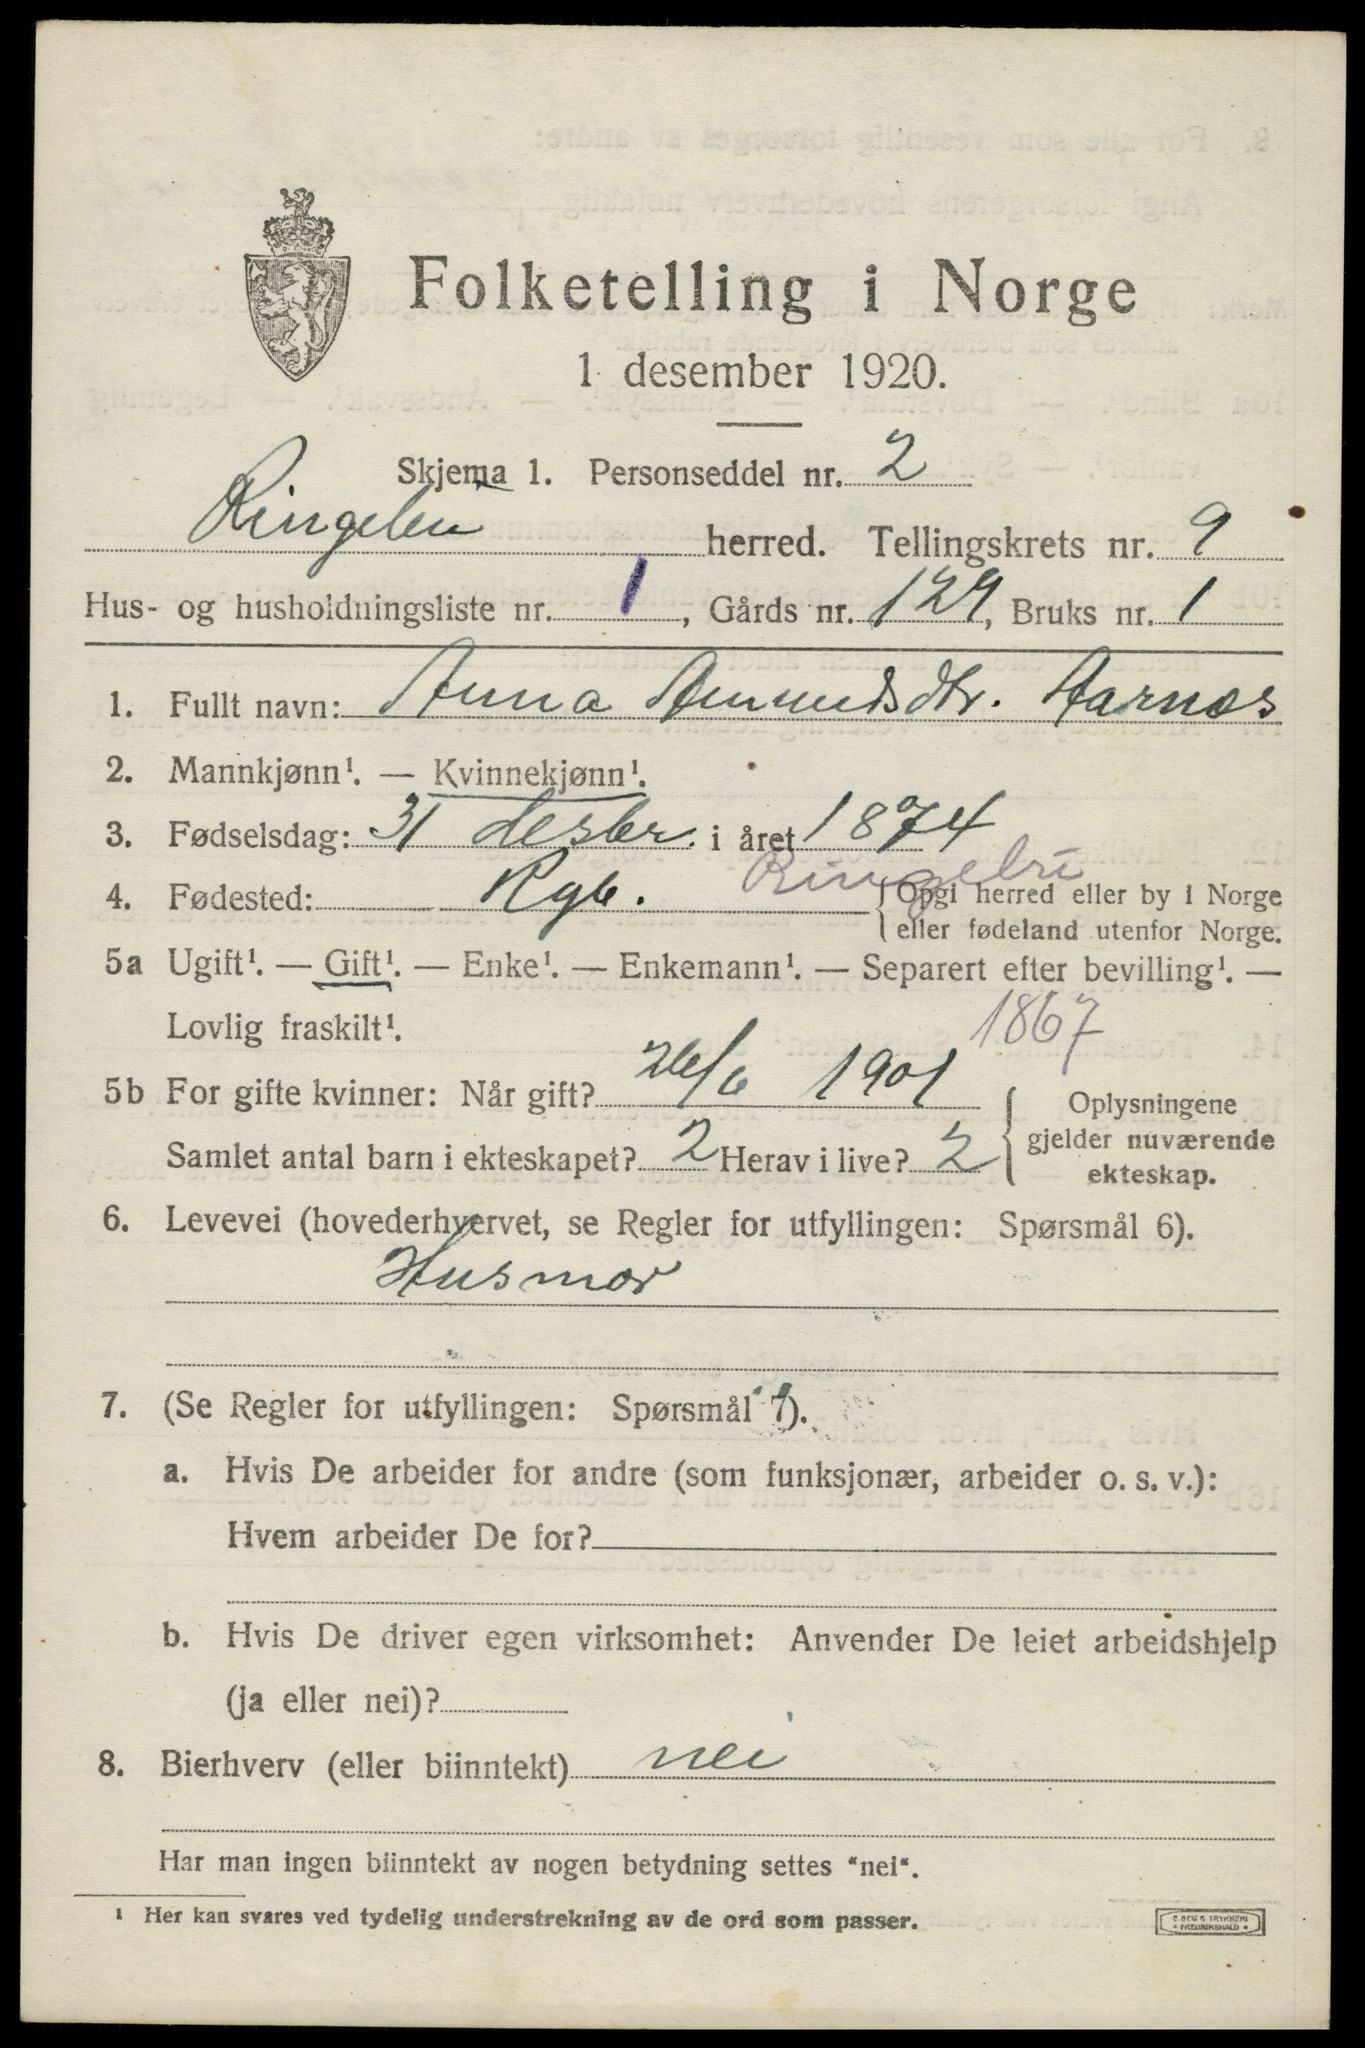 Folketelling i Norge
1 desember 1920.
Skjema 1. Personseddel nr. 2
Ringebu herred. Tellingskrets nr. 9
Hus- og husholdningsliste nr. 1, Gårds nr. 129, Bruks nr. 1
1. Fullt navn: Anna Amundsdtr. Aarnes
2. Mannkjønn¹. — Kvinnekjønn¹.
3. Fødselsdag: 31 desbr. i året 1874
4. Fødested: Rgb. Ringebu {Opgi herred eller by i Norge
eller fødeland utenfor Norge.
5a Ugift¹. — Gift¹. — Enke¹. — Enkemann¹. — Separert efter bevilling¹. —
Lovlig fraskilt¹. 1867
5b For gifte kvinner: Når gift? 26/6 1901
Samlet antal barn i ekteskapet? 2 Herav i live? 2
{Oplysningene
gjelder nuværende
ekteskap.
6. Levevei (hovederhvervet, se Regler for utfyllingen: Spørsmål 6).
Husmor
7. (Se Regler for utfyllingen: Spørsmål 7).
a. Hvis De arbeider for andre (som funksjonær, arbeider o. s. v.):
Hvem arbeider De for?
b. Hvis De driver egen virksomhet: Anvender De leiet arbeidshjelp
(ja eller nei)?
8. Bierhverv (eller biinntekt) nei
Har man ingen biinntekt av nogen betydning settes "nei".
¹ Her kan svares ved tydelig understrekning av de ord som passer.